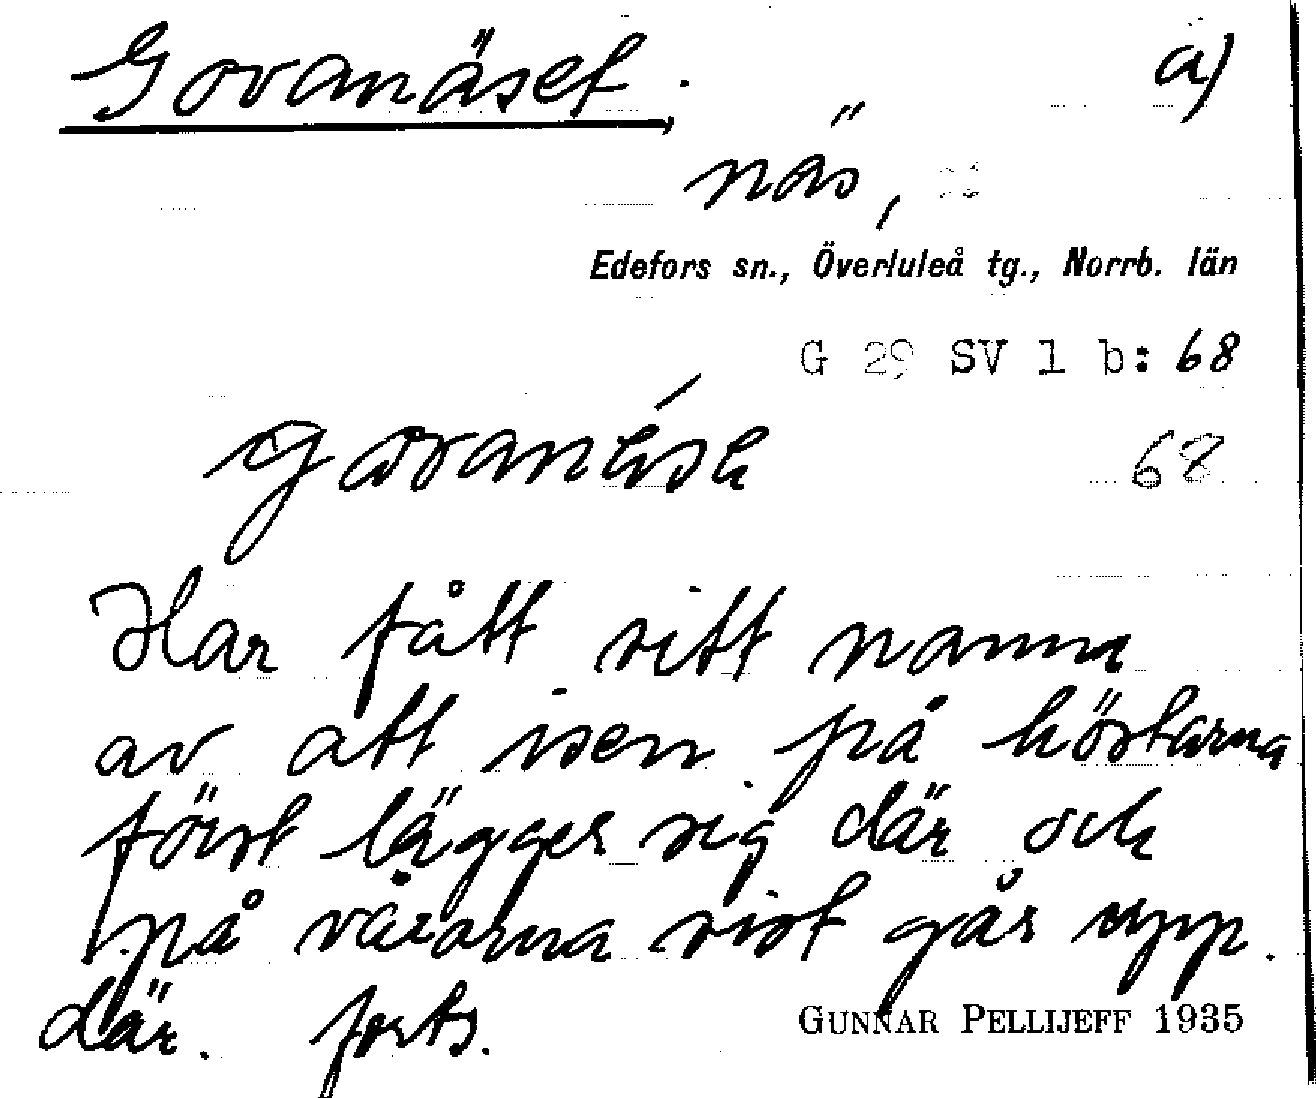 Govanäset. a)
näs,
Edefors sn., Överluleå tg., Norrb. län
G 29 SV 1 b: 68
68
Har fått sitt namn
av att isen på höstarna
först lägger sig där och
på vårarna sist går upp
där. forts.
GUNNAR PELLIJEFF 1935